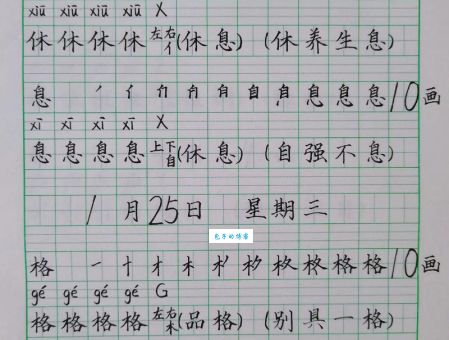 xiū xiū xiū xiū X
休 休 休 休 左右 亻 (休 息) (休 养 生 息)
息 丿 亻 白 自 自 自 息 息 息 息 10画
xī xī xī xī X
息 息 息 息 上下 自 (休 息) (自 强 不 息)
1月25日 星期三
兔子的博客
格 一 十 才 木 格 格 10画
gé gé gé gé G
格 格 格 格 左右 木 (品 格) (别 具 一 格)